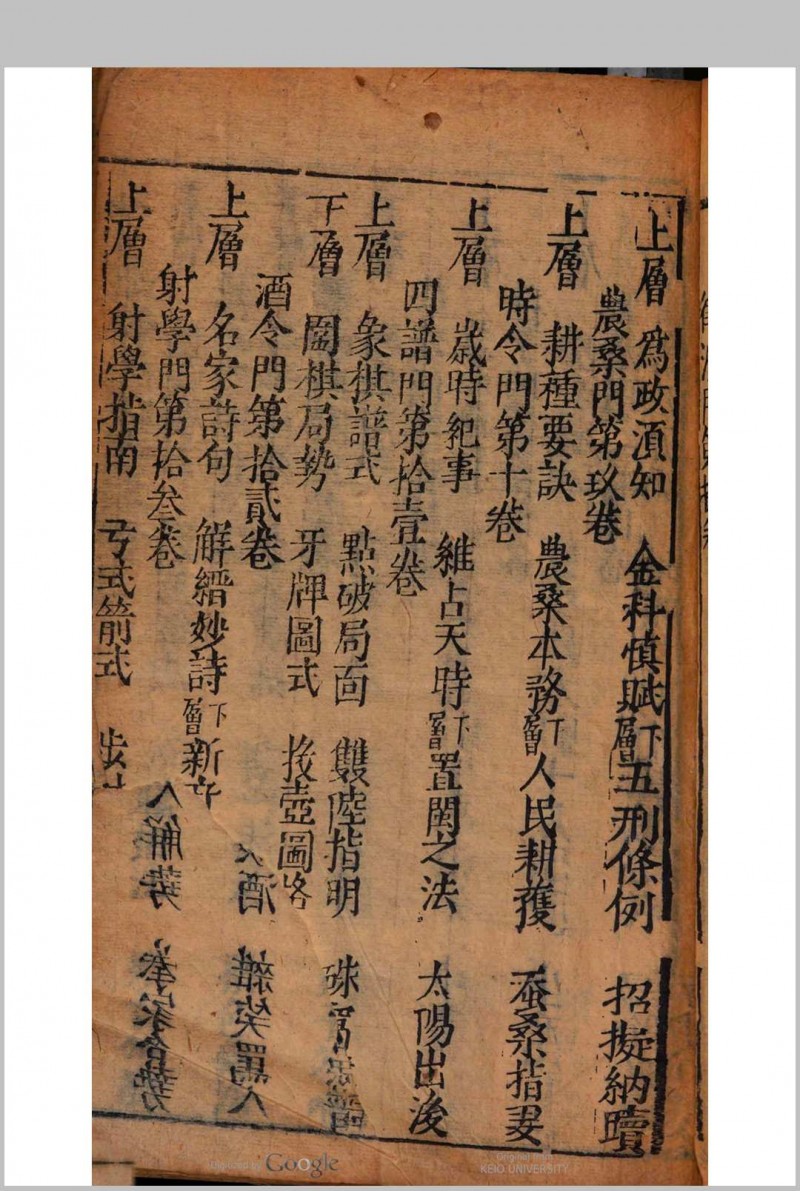 上層 爲政須知 金科慎賦 下層 五刑條例 招擬納贖
農桑門第玖卷
上層 耕種要訣 農桑本務 下層 人民耕獲 蚕桑指要
時令門第十卷
上層 歲時紀事 維占天時 下層 置閏之法 太陽出沒
四譜門第拾壹卷
上層 象棋譜式 點破局面 雙陸指明 硃
下層 圍棋局勢 牙牌圖式 投壺圖格
酒令門第拾貳卷
上層 名家詩句 解縉妙詩 下層 新
射學門第拾叁卷
上層 射學指南 弓式箭式 步
Digitized by Google
Original from
KEIO UNIVERSITY